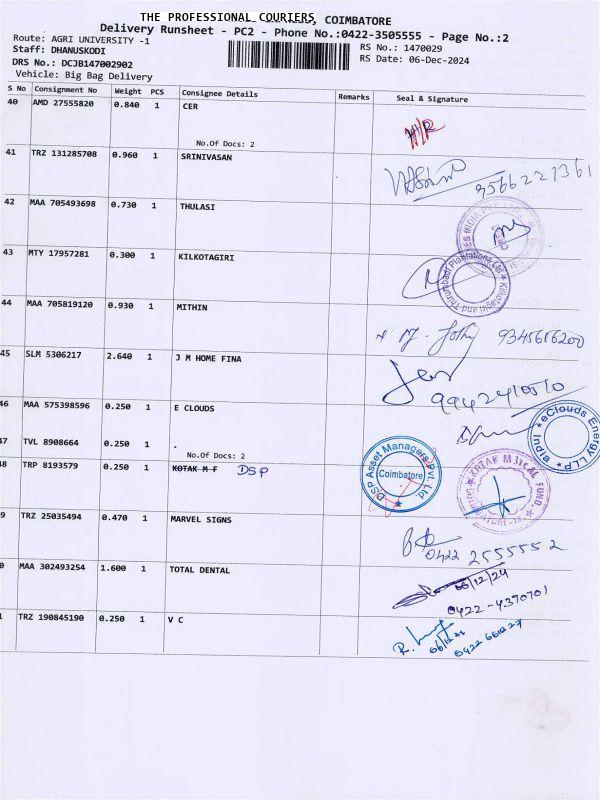 THE PROFESSIONAL COURIERS, COIMBATORE
Delivery Runsheet - PC2 - Phone No.:0422-3505555 - Page No.:2
Route: AGRI UNIVERSITY -1
RS No.: 1470029
Staff: DHANUSKODI
RS Date: 06-Dec-2024
DRS No.: DCJB147002902
Vehicle: Big Bag Delivery
S No Consignment No Weight PCS Consignee Details Remarks Seal & Signature
40 AMD 27555820 0.840 1 CER
No.Of Docs: 2
41 TRZ 131285708 0.960 1 SRINIVASAN
9566227361
42 MAA 705493698 0.730 1 THULASI
43 MTY 17957281 0.300 1 KILKOTAGIRI
Kilkotagiri and Thirumbadi Plantations Ltd
44 MAA 705819120 0.930 1 MITHIN
9345656200
45 SLM 5306217 2.640 1 J M HOME FINA
9942410510
46 MAA 575398596 0.250 1 E CLOUDS
eClouds Energy LLP India
47 TVL 8908664 0.250 1 .
No.Of Docs: 2
48 TRP 8193579 0.250 1 KOTAK M F DSP
DSP Asset Managers Pvt. Ltd.
Coimbatore
KOTAK MUTUAL FUND
9 TRZ 25035494 0.470 1 MARVEL SIGNS
0422 2555552
0 MAA 302493254 1.600 1 TOTAL DENTAL
06/12/24
0422-4370701
1 TRZ 190845190 0.250 1 V C